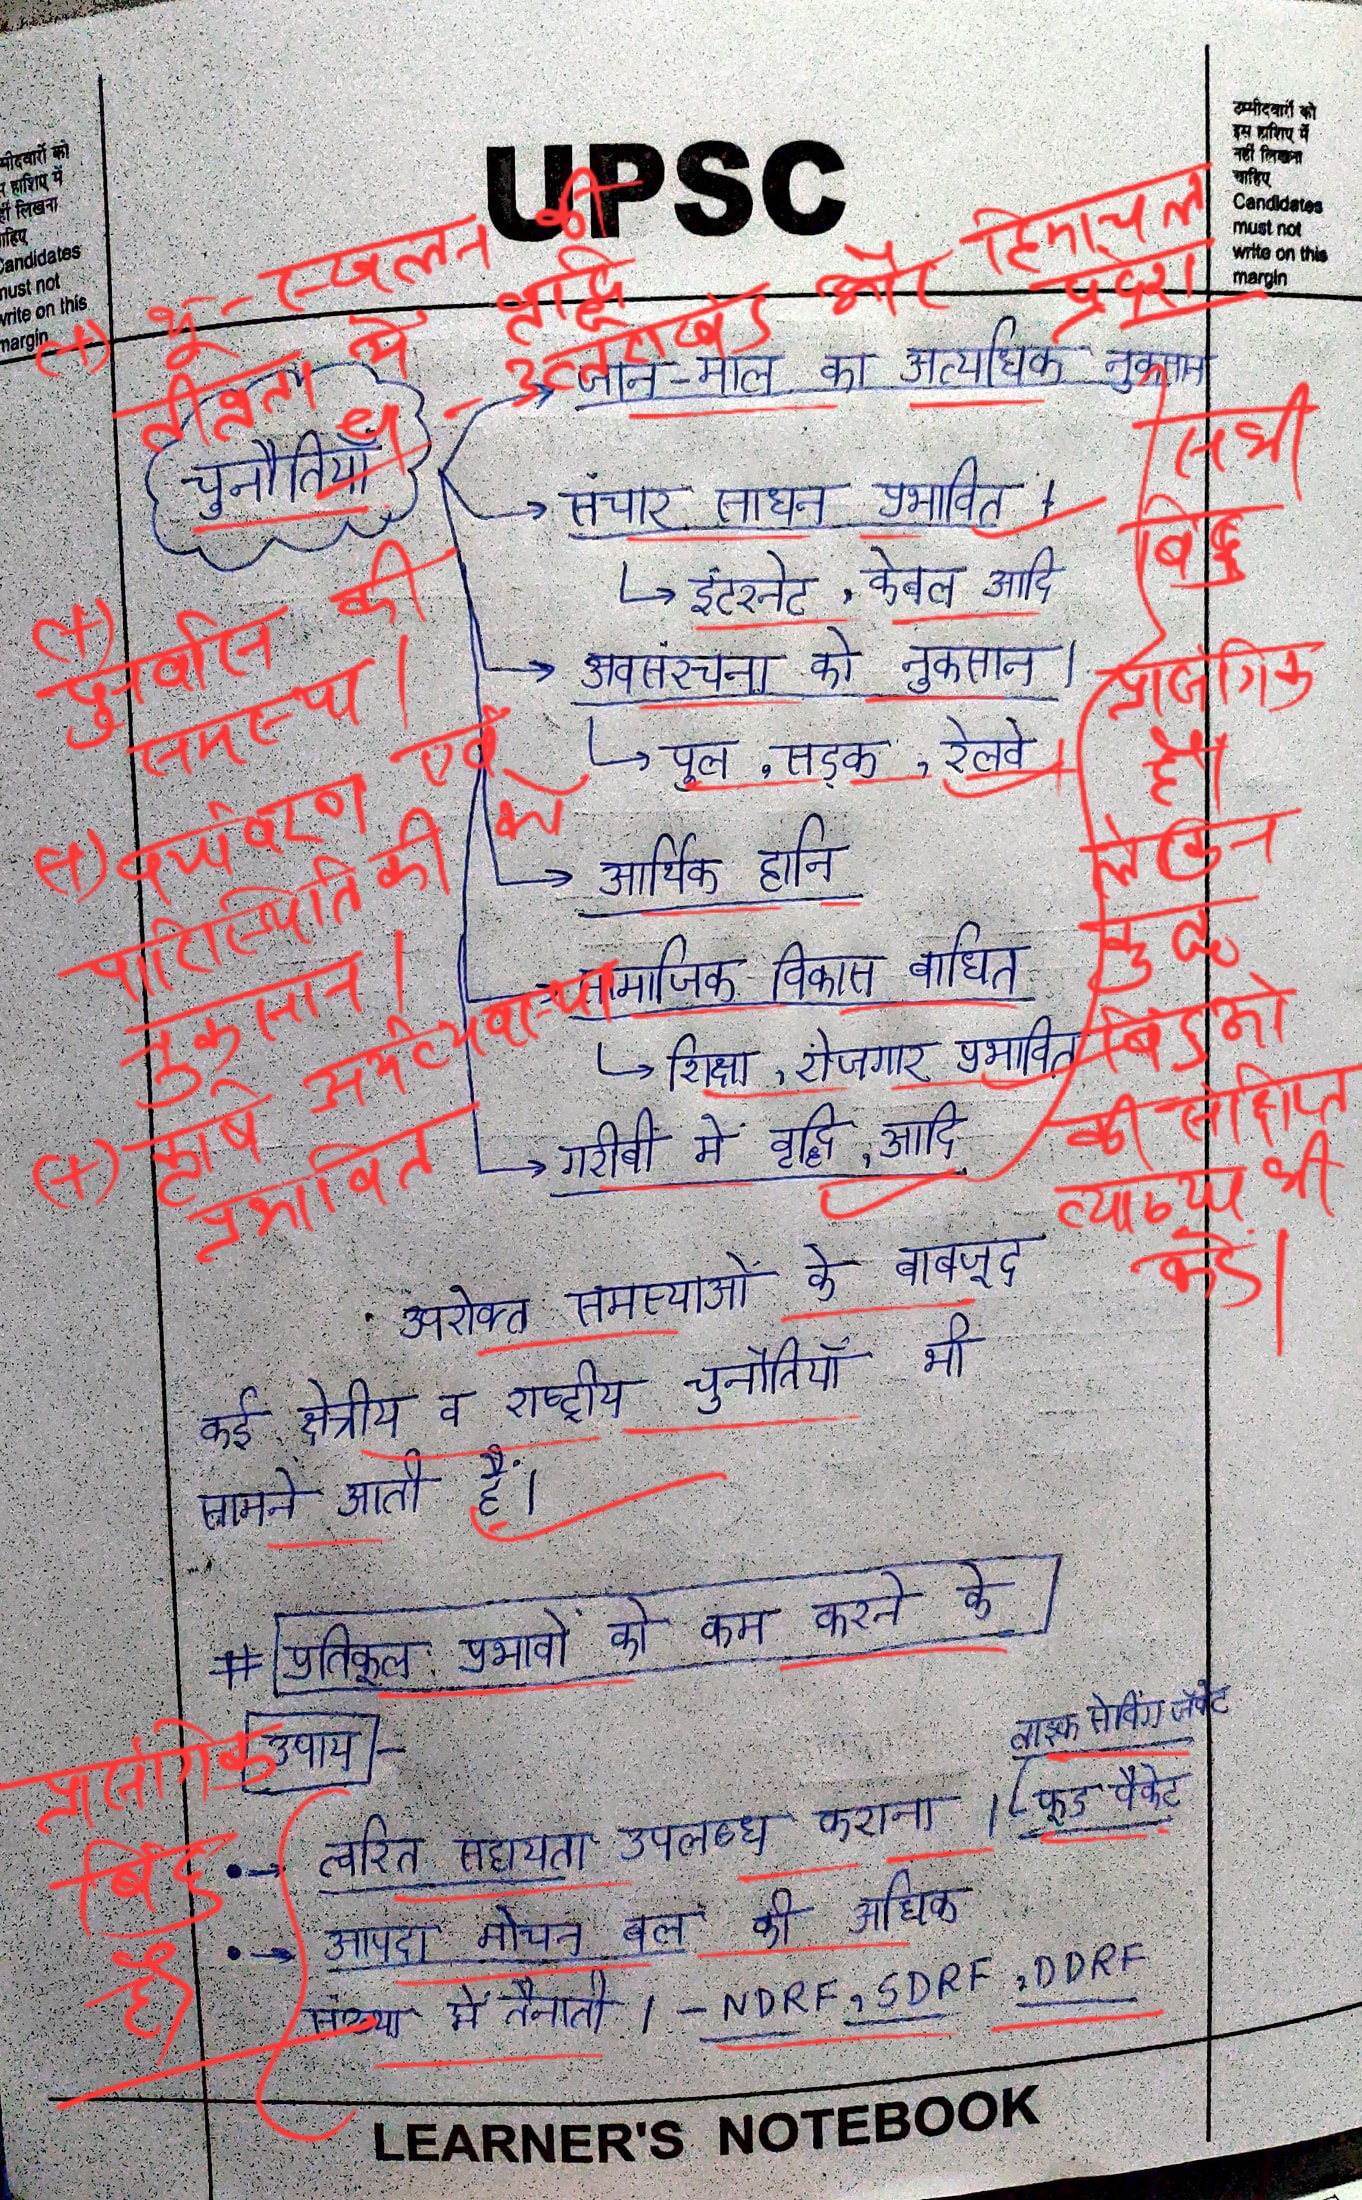 UPSC
मीदवारों को
हाशिए में
लिखना
Candidates
must not
write on this
margin
उम्मीदवारों को
इस हाशिए में
नहीं लिखना
चाहिए
Candidates
must not
write on this
margin
(+) भू-स्खलन की
तीव्रता में वृद्धि
- उत्तराखंड और हिमाचल
प्रदेश
चुनौतियाँ
→ जान-माल का अत्यधिक नुकसान
→ संचार साधन प्रभावित।
↳ इंटरनेट, केबल आदि
→ अवसंरचना को नुकसान।
↳ पुल, सड़क, रेलवे
→ आर्थिक हानि
सामाजिक विकास बाधित
↳ शिक्षा, रोजगार प्रभावित
→ गरीबी में वृद्धि, आदि
(+)
पुनर्वास की
समस्या।
(+) पर्यावरण एवं
पारिस्थितिकी को
नुकसान।
(+) कृषि अर्थव्यवस्था
प्रभावित
सभी
बिंदु
प्रासंगिक
हैं।
लेकिन
कुछ
बिंदुओं
की संक्षिप्त
व्याख्या भी
करें।
उपरोक्त समस्याओं के बाबजूद
कई क्षेत्रीय व राष्ट्रीय चुनौतियाँ भी
सामने आती हैं।
# प्रतिकूल प्रभावों को कम करने के
उपाय -
लाइफ सेविंग जैकेट
• → त्वरित सहायता उपलब्ध कराना। फूड पैकेट
• → आपदा मोचन बल की अधिक
संख्या में तैनाती। - NDRF, SDRF, DDRF
प्रासंगिक
बिंदु
हैं।
LEARNER'S NOTEBOOK